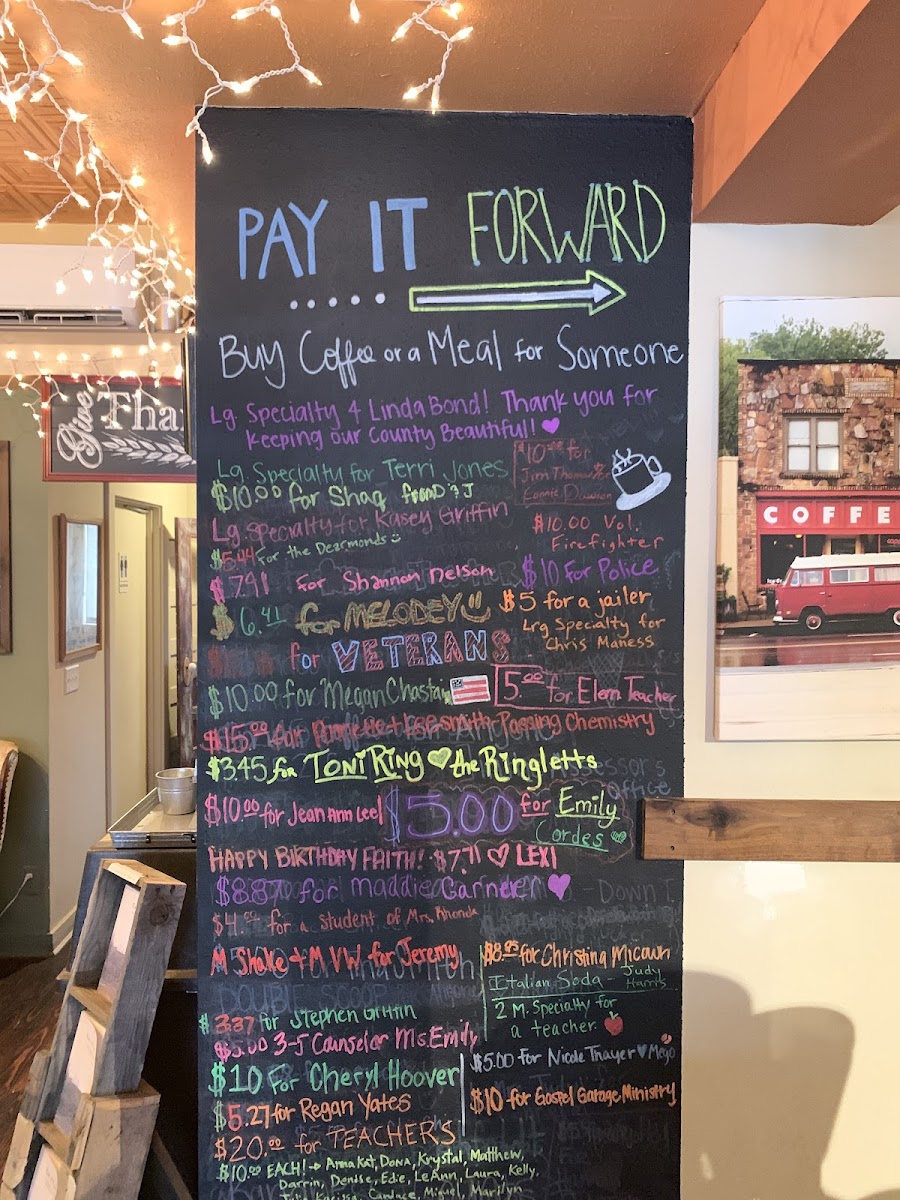 PAY IT FORWARD
Buy Coffee or a Meal for Someone
Lg Specialty 4 Linda Bond! Thank you for
keeping our County Beautiful!
Lg Specialty for Terri Jones
$10.00 for
Jim Thomas &
Connie Dawson
$10.00 for Shaq from D & J
Lg Specialty for Kasey Griffin
$10.00 Vol.
Firefighter
$5.44 for the Dearmonds
$7.91 for Shannon Nelson
$10 For Police
$6.41 for MELODEY
$5 for a jailer
Lrg Specialty for
Chris Maness
for VETERANS
$10.00 for Megan Chastain
5.00 for Elem Teacher
$15.00 for Passing Chemistry
$345 for TONI RING the Ringletts
Assessor's
Office
$10.00 for Jean Ann Lee!
$5.00 for Emily
Cordes
HAPPY BIRTHDAY FAITH! $7.71 LEXI
$8.87 for maddie Garner!
$4.00 for a student of Mrs. Rhonda
M Shake + M VW for Jeremy
DOUBLE SCOOP
$3.37 for Stephen Griffin
$5.00 3-5 Counselor Ms Emily
$10 For Cheryl Hoover
$5.27 for Regan Yates
$20.00 for TEACHERS
$8.85 for Christina Micaun
Italian Soda Judy
Harris
2 M. Specialty for
a teacher.
$5.00 for Nicole Thayer Mejo
$10 for Gospel Garage Ministry
$10.00 EACH! → AnnaKat, Dona, Krystal, Matthew,
Darrin, Denise, Edie, LeAnn, Laura, Kelly,
Candace, Miguel, Marilyn
Give
Tha
COFFE